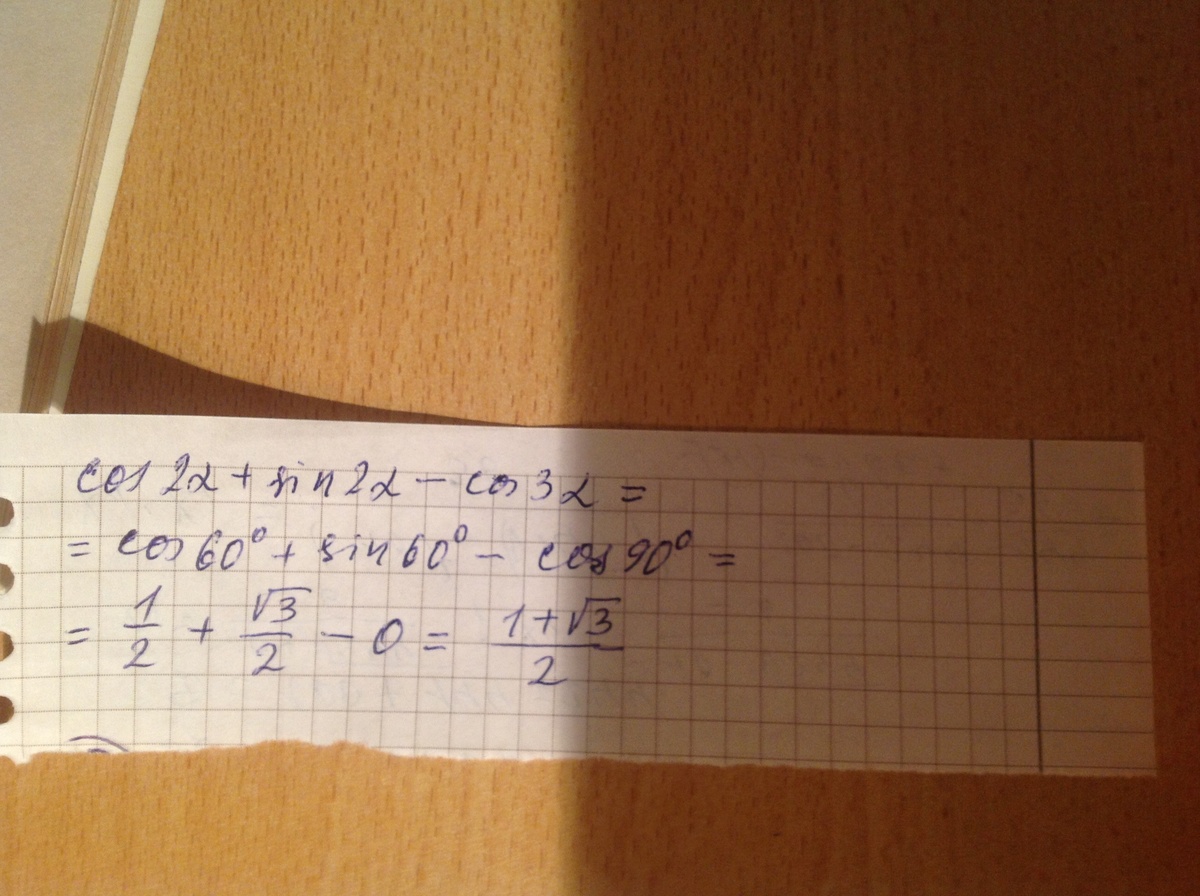 cos 2α + sin 2α − cos 3α =
= cos 60° + sin 60° − cos 90° =
= 1/2 + √3/2 − 0 = (1+√3)/2